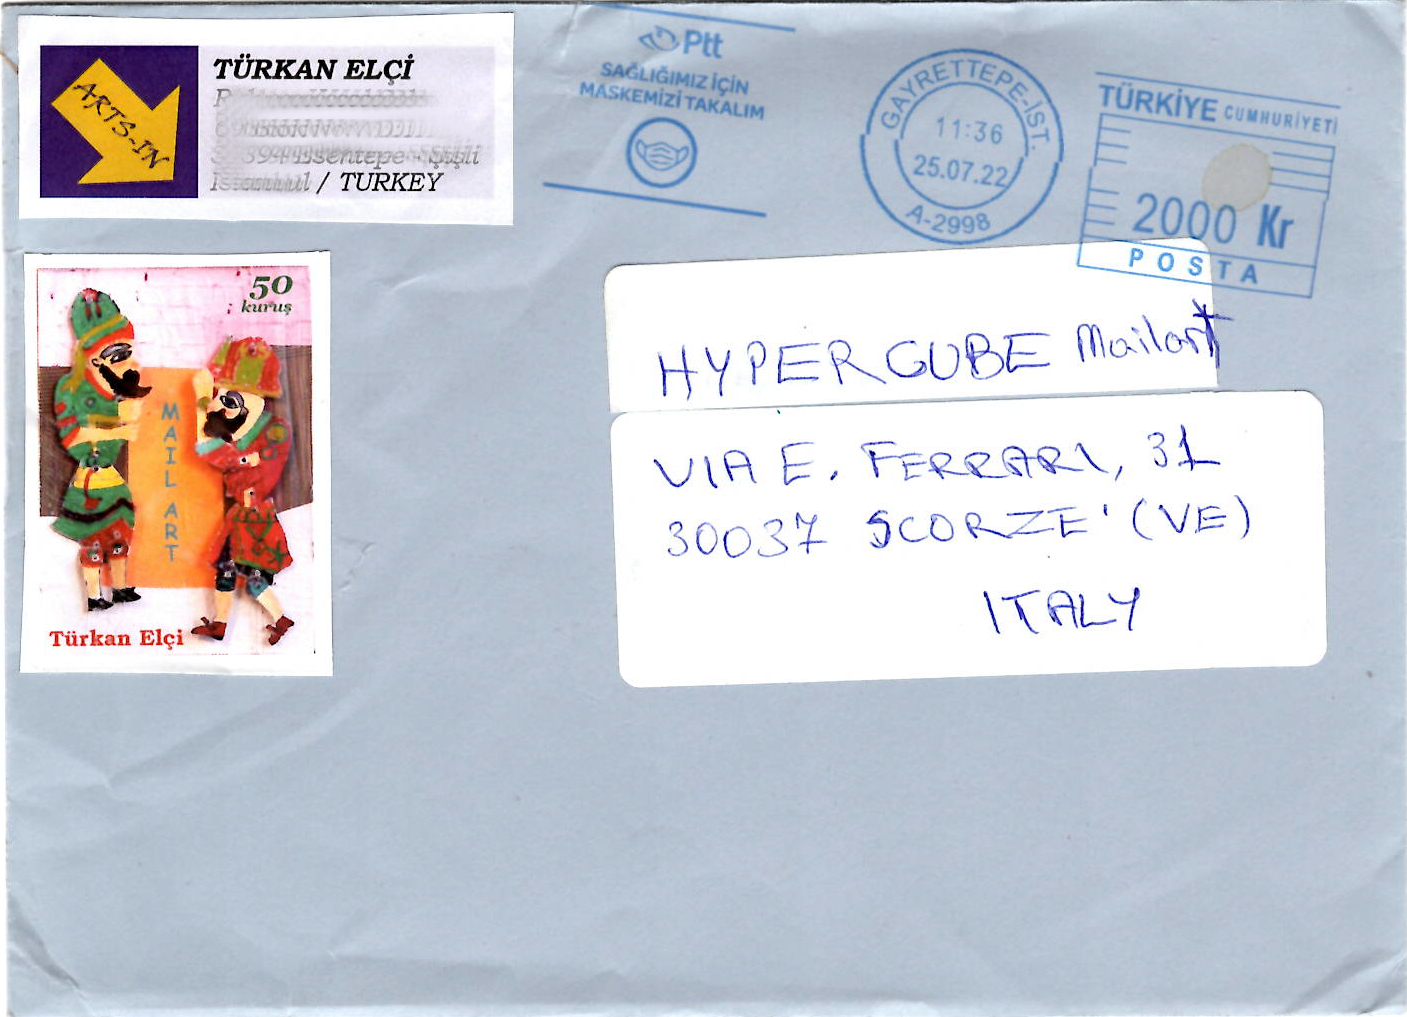 ARTS-IN
TÜRKAN ELÇİ
Esentepe - Şişli
/ TURKEY
Ptt
SAĞLIĞIMIZ İÇİN
MASKEMİZİ TAKALIM
GAYRETTEPE-İST.
11:36
25.07.22
A-2998
TÜRKİYE CUMHURİYETİ
2000 Kr
POSTA
50
kuruş
MAIL ART
Türkan Elçi
HYPERCUBE Mailart
VIA E. FERRARI, 31
30037 SCORZE' (VE)
ITALY